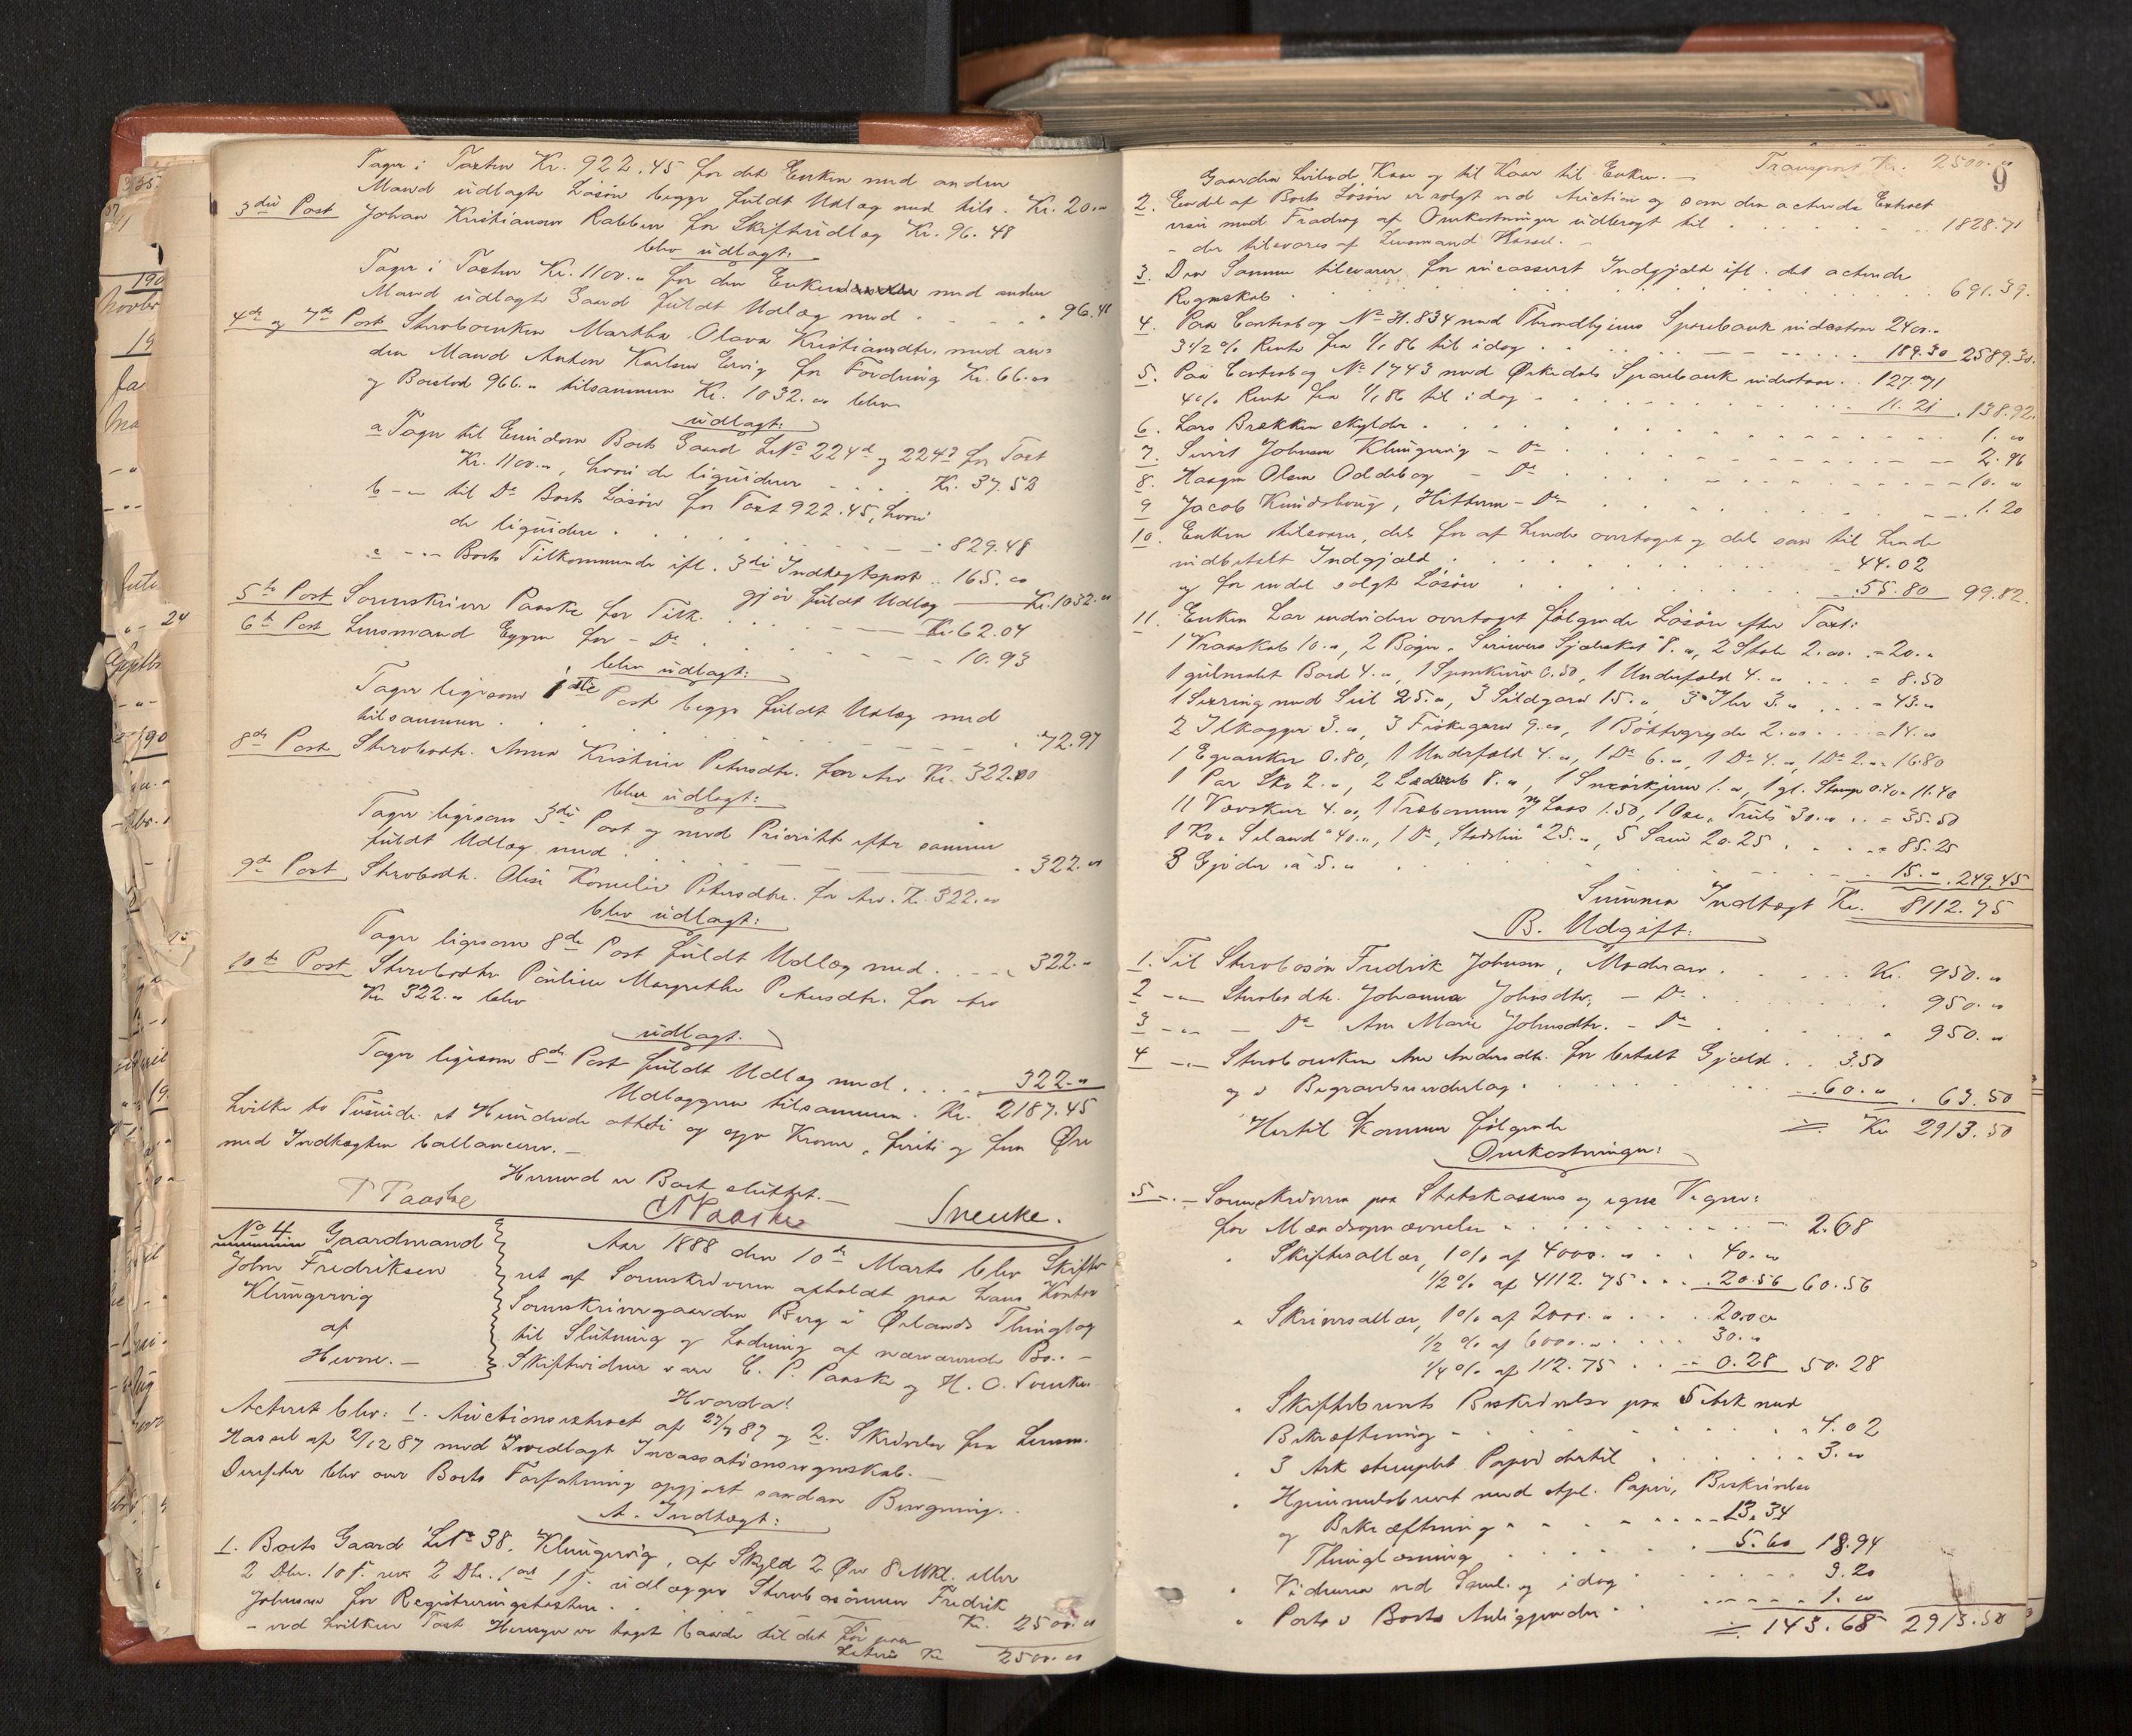 Tager i Taxten Kr. 922.45 for det Enken med anden
Mand udlagte Løsøre begge fuldt Udlæg med tils. Kr. 20."
3die Post Johan Kristiansen Rabben for Skifteudlæg Kr. 96.48
blev udlagt:
Tager i Taxten Kr. 1100." for den Enken med anden
Mand udlagte Gaard fuldt Udlæg med . . . 96.48
4de og 7de Post Stervboenken Martha Olava Kristiansdtr. med an-
den Mand Anton Karlsen Ervig for Fordring Kr. 66.00
og Boeslod 966." tilsammen Kr. 1032.00 blev
udlagt:
a Tager til Eiendom Boets Gaard LNo 224d og 224? for Taxt
Kr. 1100.", hvori de liqviderer . . . Kr. 37.52
b -"- til Do Boets Løsøre for Taxt 922.45, hvori
de liqvidere . . . 829.48
c -"- Boets Tilkommende ifl. 3die Indtægtspost . 165.00
gjør fuldt Udlæg Kr. 1032."
5te Post Sorenskriver Paaske for Tilk. . . . Kr. 62.04
6te Post Lensmand Eggen for - Do . . . 10.93
blev udlagt:
Tager ligesom 1ste Post begge fuldt Udlæg med
tilsammen . . . 72.97
8de Post Stervbodtr. Anna Kristine Petersdtr. for Arv Kr. 322.00
blev udlagt:
Tager ligesom 3die Post og med Prioritet efter samme
fuldt Udlæg med . . . 322.00
9de Post Stervbodtr. Olise Kornelie Petersdtr. for Arv. Kr. 322.00
blev udlagt:
Tager ligesom 8de Post fuldt Udlæg med . . . 322."
10de Post Stervbodtr. Pauline Margrethe Petersdtr. for Arv
Kr 322." blev
udlagt.
Tager ligesom 8de Post fuldt Udlæg med . . . 322."
Udlæggene tilsammen. Kr. 2187.45
hvilke to Tusinde et Hundrede otteti og syv Kroner, firti og fem Øre
med Indtægten ballancerer.
Hermed er Boet sluttet.
P Paaske C P Paaske Svenke.
No 4
Gaardmand
John Fredriksen
Klungervig
af
Hevne.
Aar 1888 den 10de Marts blev Skifte-
ret af Sorenskriveren afholdt paa hans Kontor
Sorenskrivergaarden Berg i Ørlands Thinglag
til Slutning og Lodning af nærværende Bo. -
Skiftevidner var C. P. Paaske og H. O. Svenke.
Hvorda!
Acteret blev: 1. Auctionsextract af 27/7 87 og 2. Skrivelse fra Lensm.
Hassel af 2/12 87 med Ivedlagt Incassationsregnskab.
Derefter blev over Boets Forfatning opgjort saadan Beregning.
A. Indtægt:
1. Boets Gaard LNo 38. Klungervig, af Skyld 2 Øre 8 Mkl. eller
2 Dlr. 10 s. rev 2 Dlr. 1 ort 1 s. udlægges Stervbosønnen Fredrik
Johnsen for Registreringstaxten . . . Kr. 2500.00
- ved hvilken Taxt Hensyn er taget baade til det før paa
Lateris Kr 2500.00
9
Gaarden hvilende Kaar og til Kaar til Enken. Transport Kr. 2500.00
2. Endel af Boets Løsøre er solgt ved Auction og som den acterede Extract
viser med Fradrag af Omkostninger udbragt til . . . 1828.71
- der tilsvares af Lensmand Hassel.
3. Den Samme tilsvarer for incasseret Indgjæld ifl. det acterede
Regnskab . . . 691.39.
4. Paa Contrabog No 31.834 med Throndhjems Sparebank indestaar 2400."
3 1/2 % Rente fra 1/1 86 til idag . . . 189.30 2589.30.
5. Paa Contrabog No 1743 med Ørkedals Sparebank indestaar . . 127.71
4% Rente fra 1/1 86 til idag . . . 11.21 . 138.92.
6. Lars Brekken skylder . . . 1.00
7. Sivert Johnsen Klungervig - Do . . . 2.96
8. Haagen Olsen Oddebog - Do . . . 10.00
9 Jacob Knudshoug, Hitteren - Do . . . 1.20
10. Enken tilsvarer, dels for af hende overtaget og dels som til hende
indbetalt Indgjæld . . . 44.02
og for endel solgt Løsøre . . . 55.80 99.82.
11. Enken har endvidere overtaget følgende Løsøre efter Taxt:
1 Vraaskab 10.", 2 Bøger "Scrivers Sjæleskat" 8.", 2 Stole 2.00. = 20."
1 gulmalet Bord 4.", 1 Spønkurv 0.50, 1 Underfæld 4." . . . = 8.50
1 Sexring med Seil 25.", 3 Sildgarn 15.", 3 Iler 3." . . . = 43."
2 Ilkagger 3.", 3 Fiskegarn 9.", 1 Bøttegryde 2.00 . . . = 14."
1 Egeanker 0.80, 1 Underfæld 4.", 1 Do 6.", 1 Do 4.", 1 Do 2." = 16.80
1 Par Sko 2.", 2 8.", 1 1.", 1 gl. Stamp 0.40 = 11.40
11 Vævskeer 4.", 1 Træbommer og Laas 1.50, 1 Oxe "Truls" 30." . . = 35.50
1 Ko "Seland" 40.", 1 Do "Stadslin" 25.", 5 Sau 20.25 . . . = 85.25
3 Gjeder à 5." . . . 15.". 249.45
Summa Indtægt Kr. 8112.75
B. Udgift:
1. Til Stervbosøn Fredrik Johnsen, Mødrearv . . . Kr. 950."
2 -"- Stervbodtr. Johanna Johnsdtr. - Do . . . 950."
3 -"- - Do Ane Marie Johnsdtr. - Do . . . 950."
4 -"- Stervboenken Ane Andersdtr. for betalt Gjæld . . 3.50
og i Begravelsesudlæg . . . 60." . 63.50
= Kr 2913.50
Hertil kommer følgende
Omkostninger:
5 -"- Sorenskriveren paa Statskassens og egne Vegne:
for Mændsopnævnelse . . . 2.68
" Skiftesallær, 1% af 4000." . . 40."
1/2 % af 4112.75 . . . 20.56 60.56
" Skriversallær, 1% af 2000." . . . 20.00
1/2 % af 6000." . . . 30."
1/4 % af 112.75 . . . 0.28 50.28
" Skiftebrevets Beskrivelse paa 5 Ark med
Bekræftning . . . 4.02
" 3 Ark stemplet Papir dertil . . . 3.00
" Hjemmelsbrevet med stpl. Papir, Beskrivelse
og Bekræftning . . . 13.34
Thinglæsning . . . 5.60 18.94
" Vidnerne ved Saml. og idag . . . 3.20
" Porto i Boets Anliggender . . . 1.00
= 143.68 2913.50